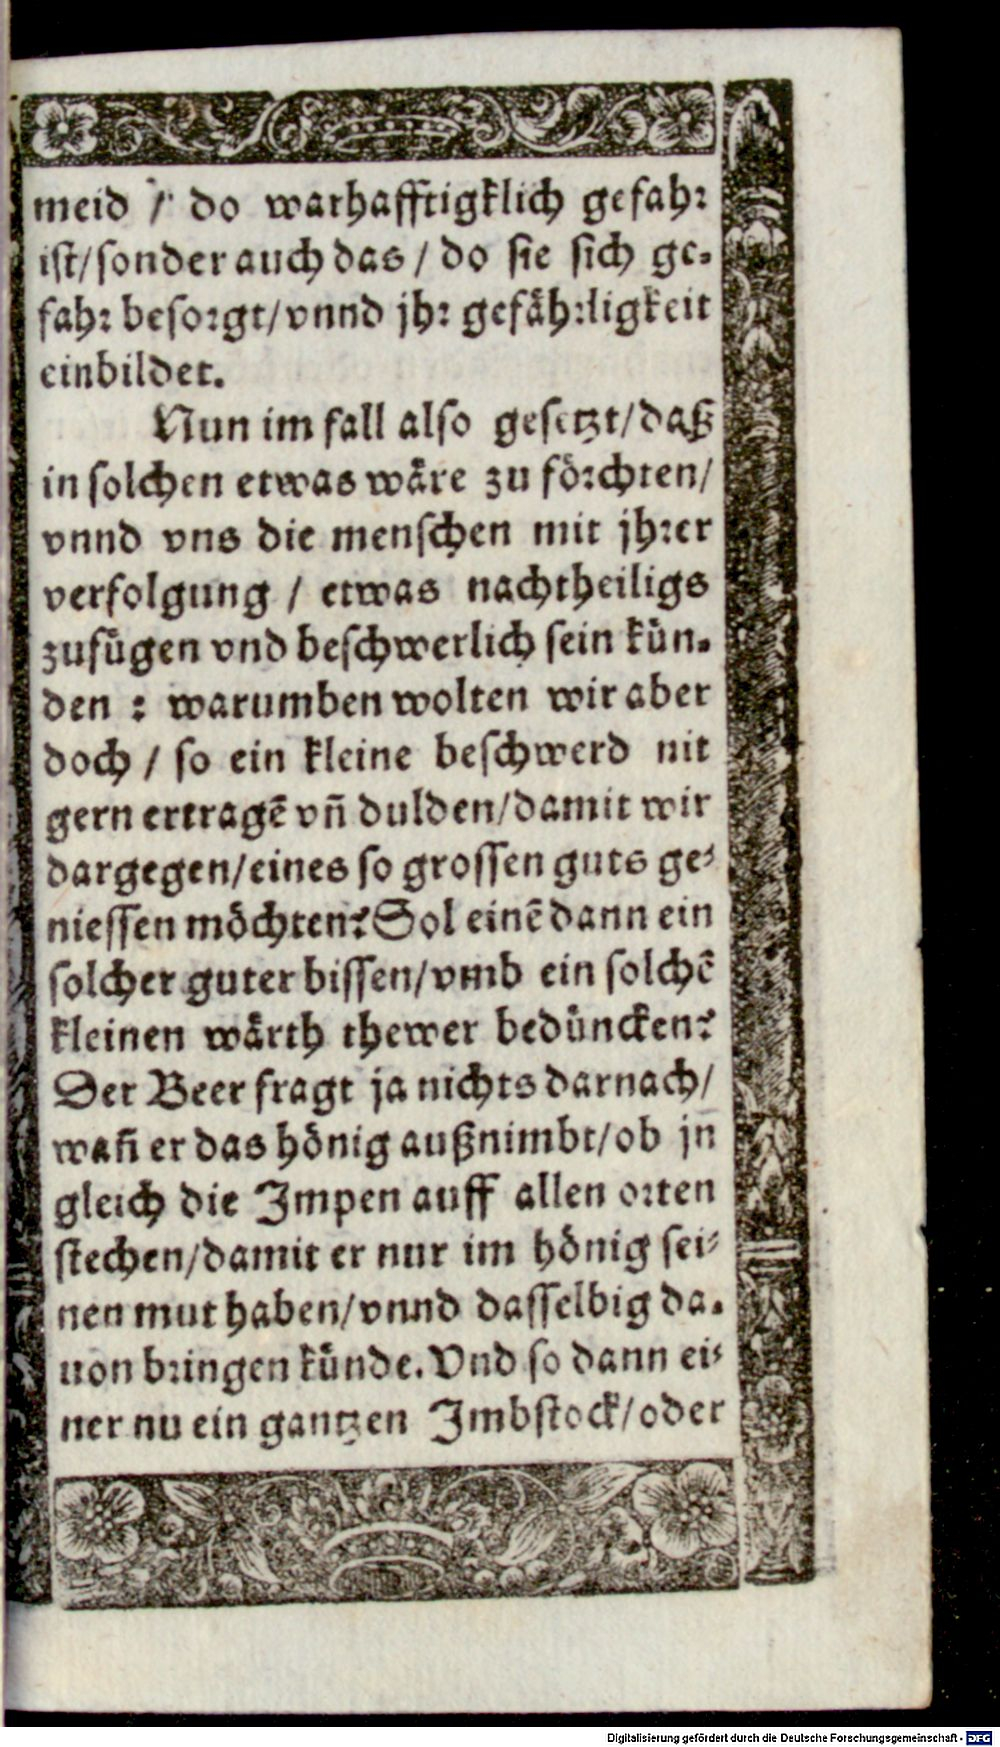 meid / do warhafftigklich gefahr
ist/sonder auch das / do sie sich ge-
fahr besorgt/vnnd jhr gefährligkeit
einbildet.
Nun im fall also gesetzt/daß
in solchen etwas wäre zu förchten/
vnnd vns die menschen mit jhrer
verfolgung / etwas nachtheiligs
zufügen vnd beschwerlich sein kün-
den : warumben wolten wir aber
doch / so ein kleine beschwerd nit
gern ertragē vñ dulden/damit wir
dargegen/eines so grossen guts ge-
niessen möchten? Sol einē dann ein
solcher guter bissen/vmb ein solchē
kleinen wärth thewer beduncken?
Der Beer fragt ja nichts darnach/
wañ er das hönig außnimbt/ob jn
gleich die Impen auff allen orten
stechen/damit er nur im hönig sei-
nen mut haben/vnnd dasselbig da-
uon bringen künde. Vnd so dann ei-
ner nu ein gantzen Imbstock/oder
Digitalisierung gefördert durch die Deutsche Forschungsgemeinschaft - DFG